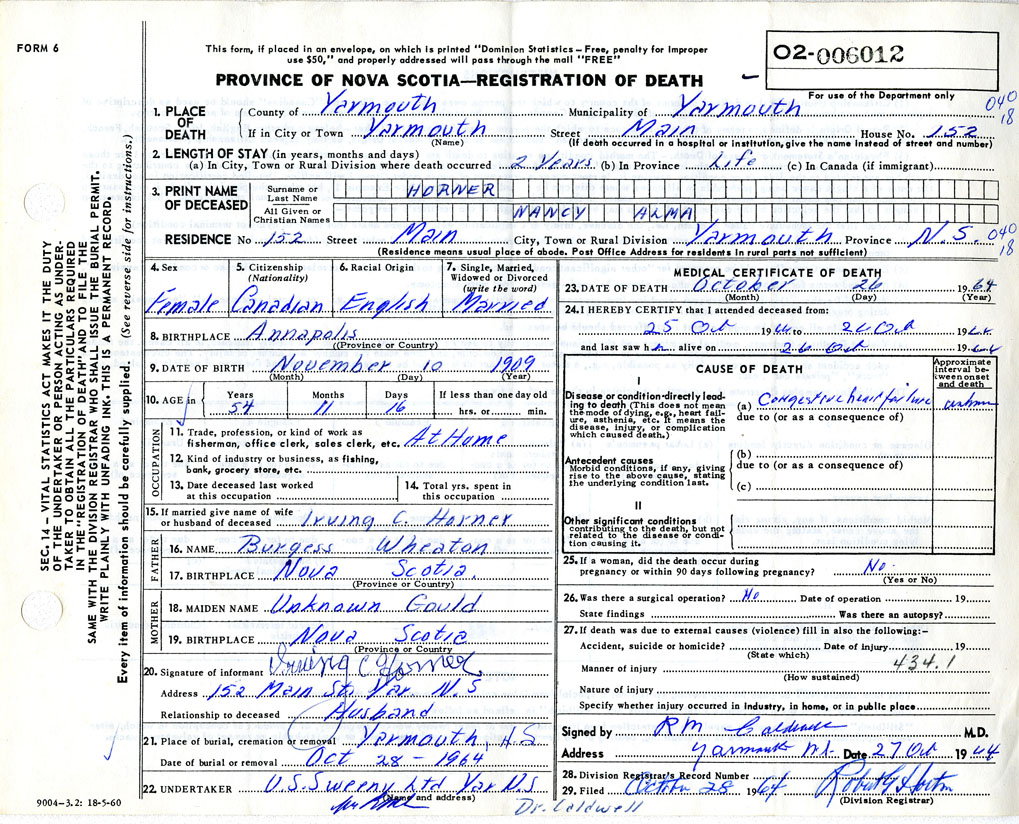 FORM 6
This form, if placed in an envelope, on which is printed "Dominion Statistics – Free, penalty for improper
use $50," and properly addressed will pass through the mail "FREE"
O2-006012
PROVINCE OF NOVA SCOTIA—REGISTRATION OF DEATH
For use of the Department only
1. PLACE OF DEATH County of Yarmouth Municipality of Yarmouth 040
If in City or Town Yarmouth Street Main House No. 152 18
(Name) (If death occurred in a hospital or institution, give the name instead of street and number)
2. LENGTH OF STAY (in years, months and days)
(a) In City, Town or Rural Division where death occurred 2 Years (b) In Province Life (c) In Canada (if immigrant)
3. PRINT NAME OF DECEASED Surname or Last Name HORNER
All Given or Christian Names NANCY ALMA
RESIDENCE No 152 Street Main City, Town or Rural Division Yarmouth Province N.S. 040
18
(Residence means usual place of abode. Post Office Address for residents in rural parts not sufficient)
SEC. 14 – VITAL STATISTICS ACT MAKES IT THE DUTY
OF THE UNDERTAKER OR PERSON ACTING AS UNDER-
TAKER TO OBTAIN ALL THE PARTICULARS REQUIRED
IN THE "REGISTRATION OF DEATH" AND TO FILE THE
SAME WITH THE DIVISION REGISTRAR WHO SHALL ISSUE THE BURIAL PERMIT.
WRITE PLAINLY WITH UNFADING INK. THIS IS A PERMANENT RECORD.
Every item of information should be carefully supplied. (See reverse side for instructions.)
4. Sex
Female
5. Citizenship
(Nationality)
Canadian
6. Racial Origin
English
7. Single, Married,
Widowed or Divorced
(write the word)
Married
8. BIRTHPLACE Annapolis
(Province or Country)
9. DATE OF BIRTH November 10 1909
(Month) (Day) (Year)
10. AGE in Years Months Days If less than one day old
54 11 16 hrs. or min.
OCCUPATION
11. Trade, profession, or kind of work as
fisherman, office clerk, sales clerk, etc. At Home
12. Kind of industry or business, as fishing,
bank, grocery store, etc.
13. Date deceased last worked
at this occupation
14. Total yrs. spent in
this occupation
15. If married give name of wife
or husband of deceased Irving C. Horner
FATHER
16. NAME Burgess Wheaton
17. BIRTHPLACE Nova Scotia.
(Province or Country)
MOTHER
18. MAIDEN NAME Unknown Gould
19. BIRTHPLACE Nova Scotia
(Province or Country
20. Signature of informant Irving C Horner
Address 152 Main St. Yar. N.S
Relationship to deceased Husband
21. Place of burial, cremation or removal Yarmouth, N.S
Date of burial or removal Oct 28 - 1964
22. UNDERTAKER V.S. Sweeny Ltd Yar N.S
(Name and address)
9004–3.2: 18-5-60
MEDICAL CERTIFICATE OF DEATH
23. DATE OF DEATH October 26 1964
(Month) (Day) (Year)
24. I HEREBY CERTIFY that I attended deceased from:
25 Oct 1964 to 26 Oct 1964
and last saw h alive on 26 Oct 1964
CAUSE OF DEATH
Approximate
interval be-
tween onset
and death
I
Disease or condition directly lead-
ing to death (This does not mean
the mode of dying, e.g., heart fail-
ure, asthenia, etc. It means the
disease, injury, or complication
which caused death.)
(a) Congestive heart failure unknown
due to (or as a consequence of)
Antecedent causes
Morbid conditions, if any, giving
rise to the above cause, stating
the underlying condition last.
(b)
due to (or as a consequence of)
(c)
II
Other significant conditions
contributing to the death, but not
related to the disease or condi-
tion causing it.
25. If a woman, did the death occur during
pregnancy or within 90 days following pregnancy? No.
(Yes or No)
26. Was there a surgical operation? No Date of operation 19
State findings Was there an autopsy?
27. If death was due to external causes (violence) fill in also the following:–
Accident, suicide or homicide? Date of injury 19
(State which)
Manner of injury 434.1
(How sustained)
Nature of injury
Specify whether injury occurred in industry, in home, or in public place
Signed by RM Caldwell M.D.
Address Yarmouth N.S. Date 27 Oct 1964
28. Division Registrar's Record Number
29. Filed October 28 1964
(Division Registrar)
Dr. Caldwell